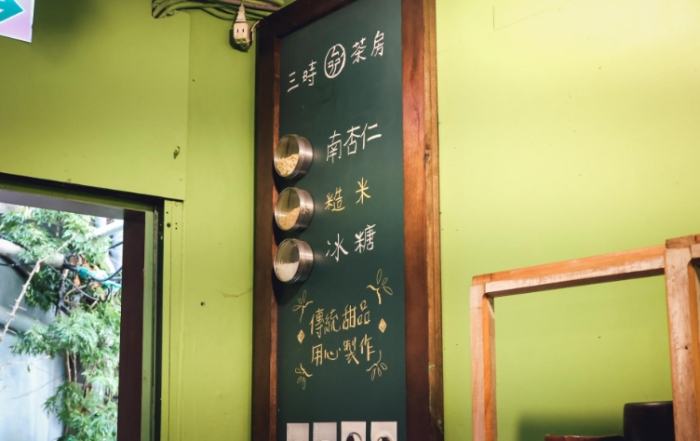 三時茶房
南杏仁
糙米
冰糖
傳統甜品
用心製作